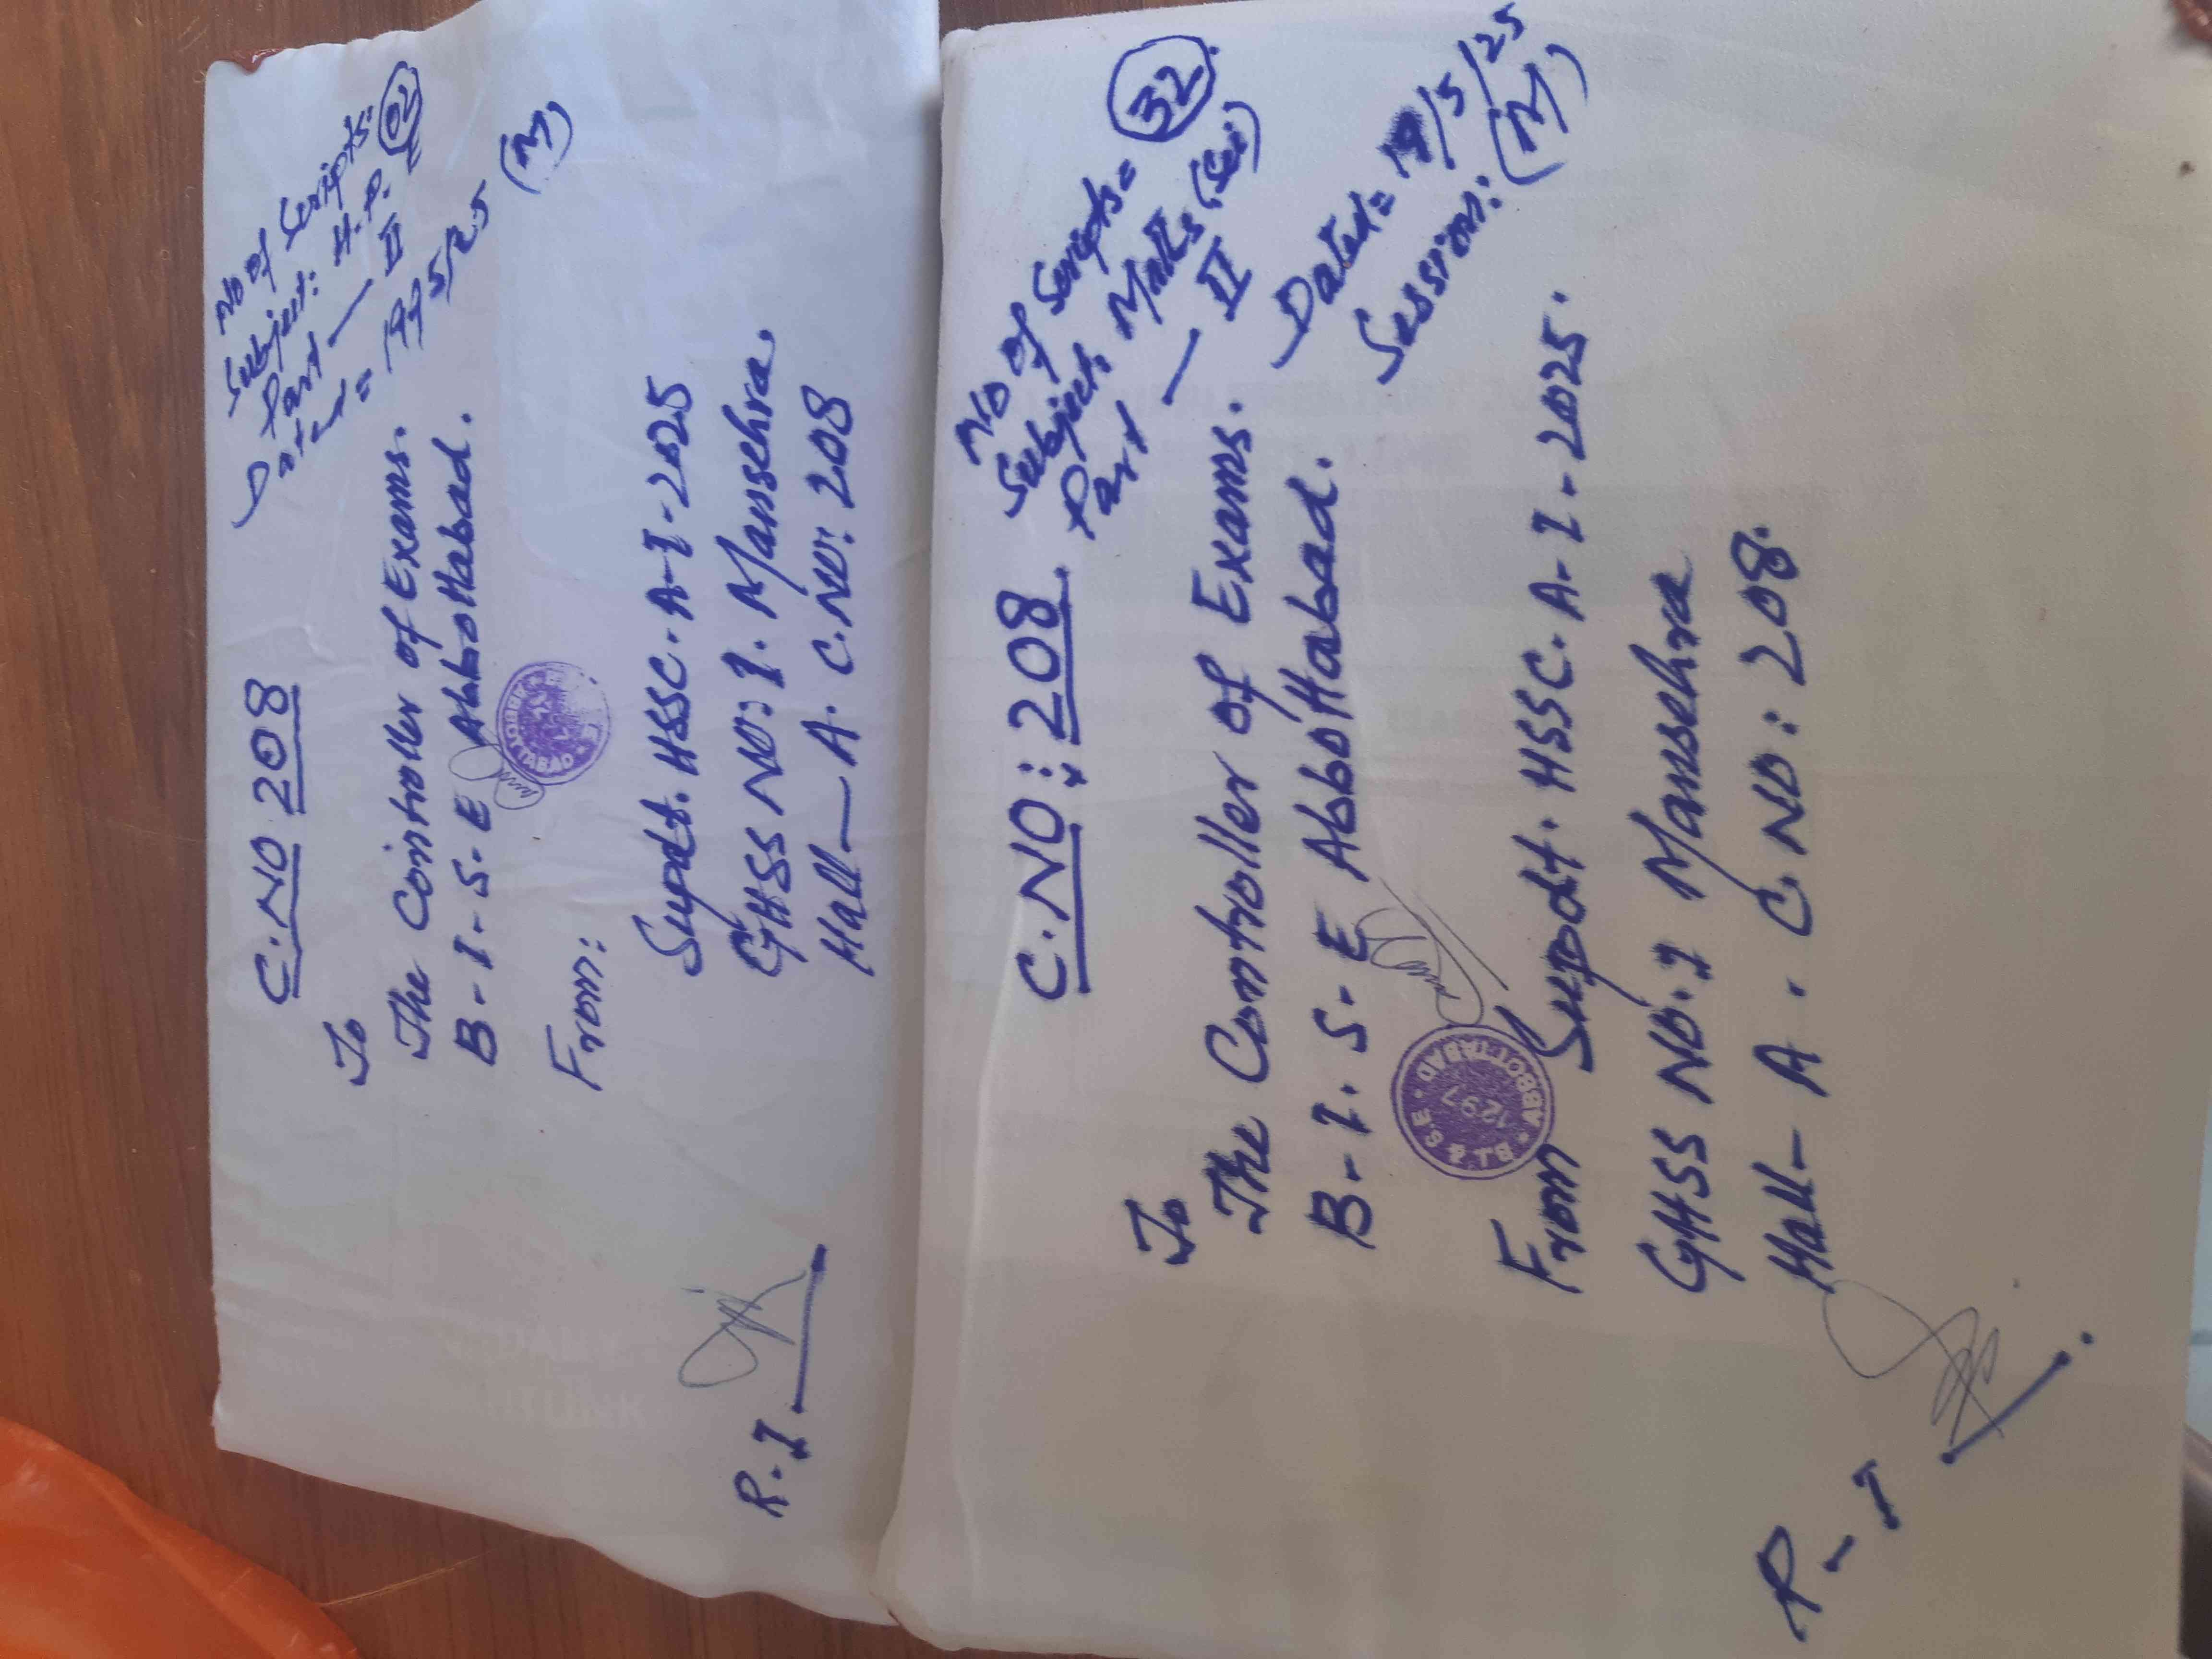 C.NO 208
No of Scripts: 02
Subject: H.P.E
Part — II
Dated = 19/5/25 (M)
To
The Controller of Exams.
B-I-S-E Abbottabad.
From:
Supdt. HSSC. A-I-2025
GHSS NO: 1. Mansehra.
Hall — A. C.NO: 208
R-I
C.NO: 208.
No of Scripts = 32
Subject: Maths (Sci)
Part — II
Dated = 19/5/25
Session: (M)
To
The Controller of Exams.
B-I.S-E Abbottabad.
B.I.S.E. ABBOTTABAD
1297
From Supdt. HSSC. A-I-2025.
GHSS NO.1 Mansehra
Hall- A. C.NO: 208.
R-I